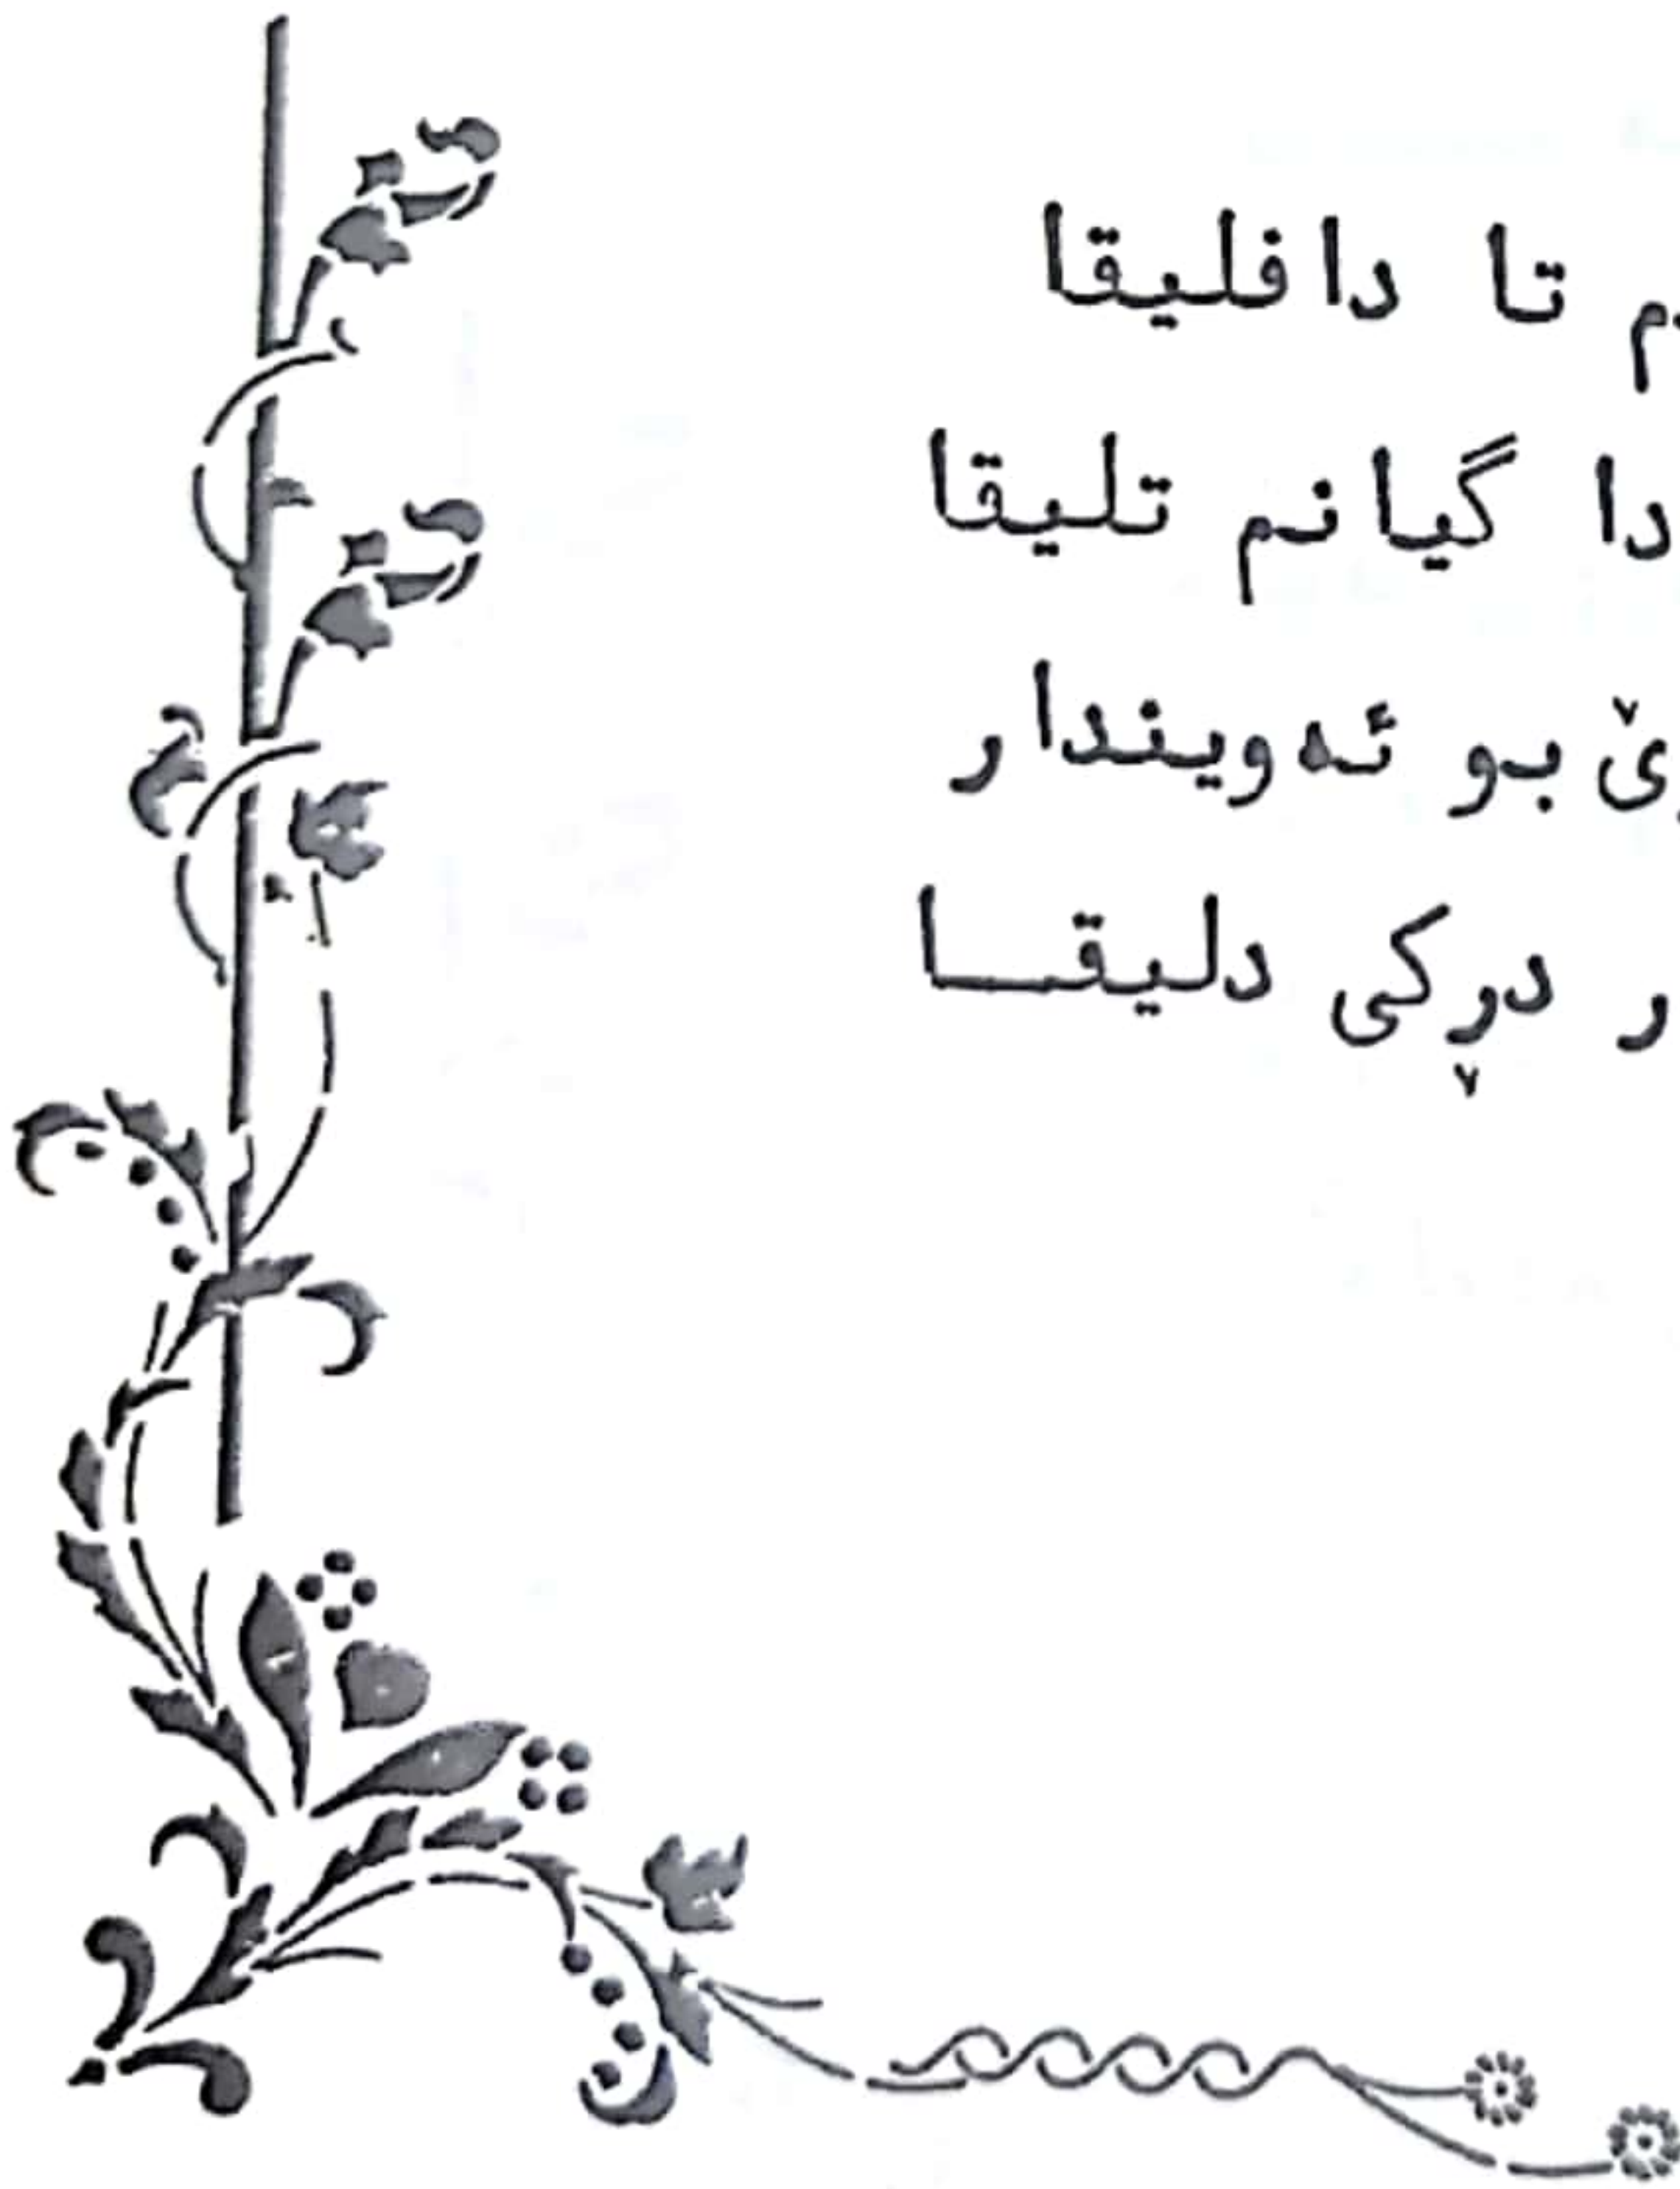 م تا دافلیقا
دا گیانم تلیقا
ێ بو ئەویندار
ر دڕکی دلیقا